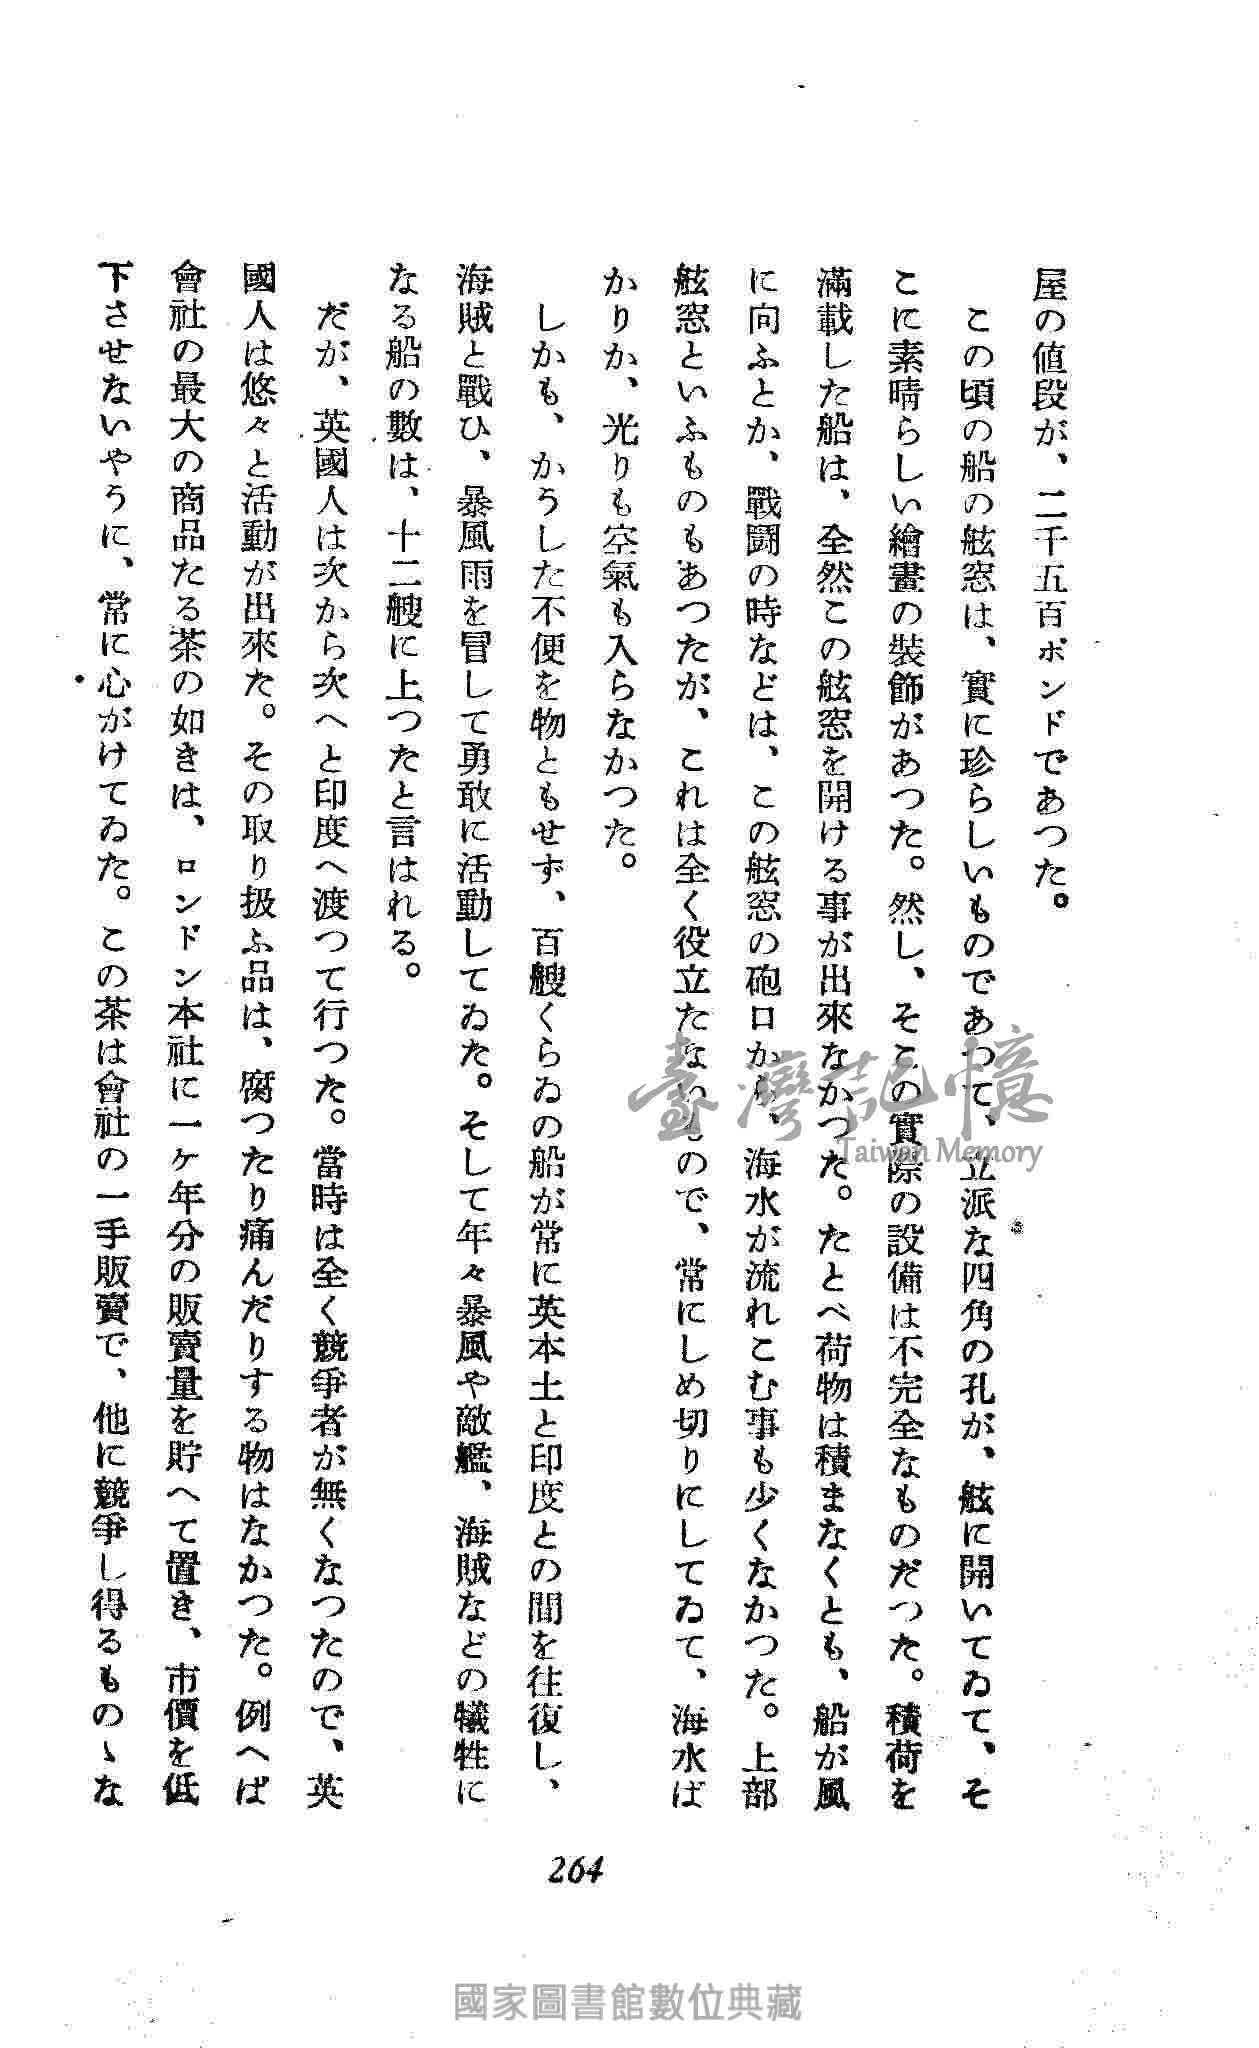 屋の値段が、二千五百ポンドであつた。
この頃の船の舷窓は、實に珍らしいものであつて、立派な四角の孔が、舷に開いてゐて、そ
こに素晴らしい繪畫の裝飾があつた。然し、そこの實際の設備は不完全なものだつた。積荷を
滿載した船は、全然この舷窓を開ける事が出來なかつた。たとへ荷物は積まなくとも、船が風
に向ふとか、戰鬪の時などは、この舷窓の砲口から、海水が流れこむ事も少くなかつた。上部
舷窓といふものもあつたが、これは全く役立たないもので、常にしめ切りにしてゐて、海水ば
かりか、光りも空氣も入らなかつた。
しかも、かうした不便を物ともせず、百艘くらゐの船が常に英本土と印度との間を往復し、
海賊と戰ひ、暴風雨を冒して勇敢に活動してゐた。そして年々暴風や敵艦、海賊などの犧牲に
なる船の數は、十二艘に上つたと言はれる。
だが、英國人は次から次へと印度へ渡つて行つた。當時は全く競爭者が無くなつたので、英
國人は悠々と活動が出來た。その取り扱ふ品は、腐つたり痛んだりする物はなかつた。例へば
會社の最大の商品たる茶の如きは、ロンドン本社に一ケ年分の販賣量を貯へて置き、市價を低
下させないやうに、常に心がけてゐた。この茶は會社の一手販賣で、他に競爭し得るものゝな
264
臺灣記憶
Taiwan Memory
國家圖書館數位典藏